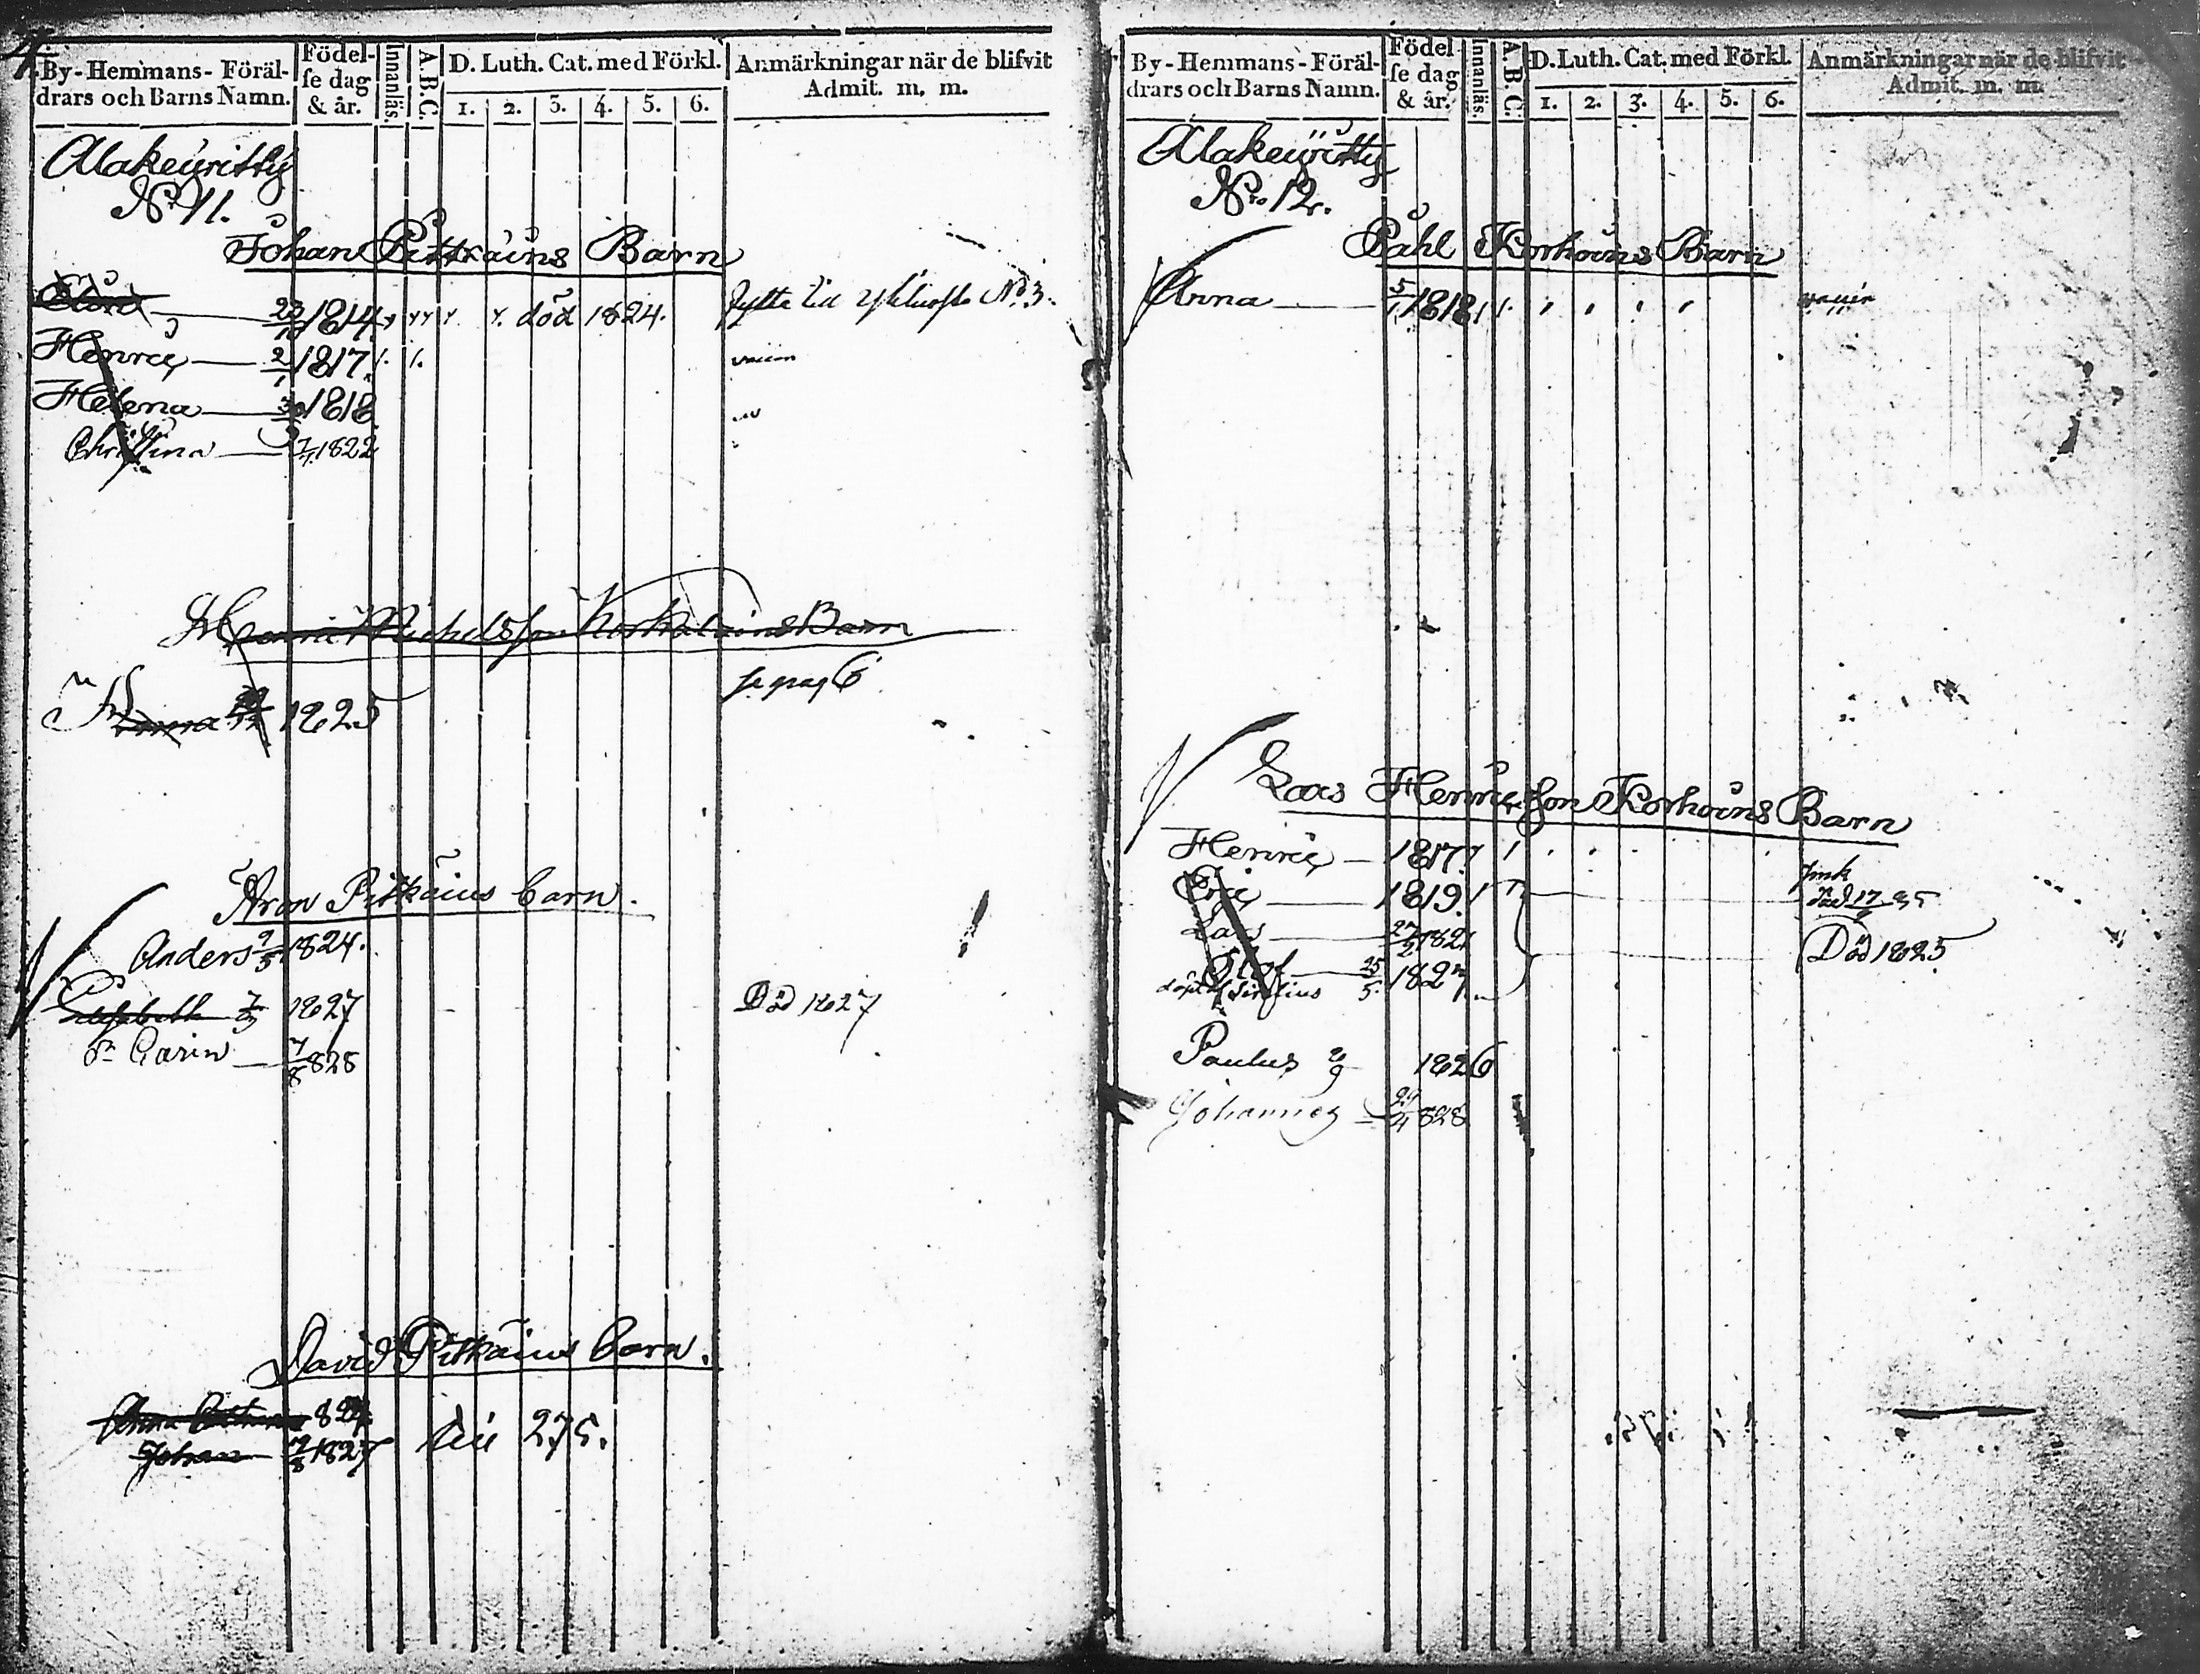 4.
By-Hemmans-Föräl-
drars och Barns Namn.
Födel-
se dag
& år.
Innanläs.
A.B.C.
D. Luth. Cat. med Förkl.
1. 2. 3. 4. 5. 6.
Anmärkningar när de blifvit
Admit. m. m.
Alakeuritty
No 11.
Johan Pitkäins Barn
23 1814 död 1824. No 3.
Henric 2/1 1817.
Helena 1818
Christina 1822
Henric Michelsson Barn
se pag 6
1825
Aron Pitkäins barn.
Anders 9/5 1824.
Elisabeth 1827 Död 1827
Carin 7/8 828
David Pitkäins barn.
Anna 824
Johan 1827 275.
By-Hemmans-Föräl-
drars och Barns Namn.
Födel-
se dag
& år.
Innanläs.
A.B.C.
D. Luth. Cat. med Förkl.
1. 2. 3. 4. 5. 6.
Anmärkningar när de blifvit
Admit. m. m.
Alakeuritty
No. 12.
Påhl Korhoins Barn
Anna 5/1 1818
Lars Henricsson Korhoins Barn
Henric 1817
Eric 1819
Lars 27 182
Död 1825
Olof 25/5. 182
Paulus 1826
Johannes 29/4 828